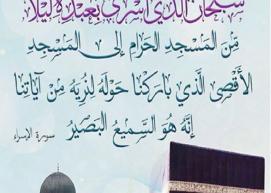 سُبْحَانَ الَّذِي أَسْرَىٰ بِعَبْدِهِ لَيْلًا
مِّنَ الْمَسْجِدِ الْحَرَامِ إِلَى الْمَسْجِدِ
الْأَقْصَى الَّذِي بَارَكْنَا حَوْلَهُ لِنُرِيَهُ مِنْ آيَاتِنَا
إِنَّهُ هُوَ السَّمِيعُ الْبَصِيرُ
سورة الإسراء